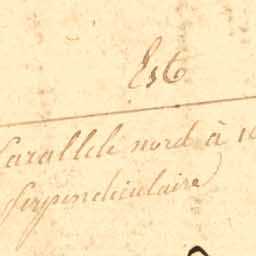 Est
Parallele nord à
Perpendiculaire